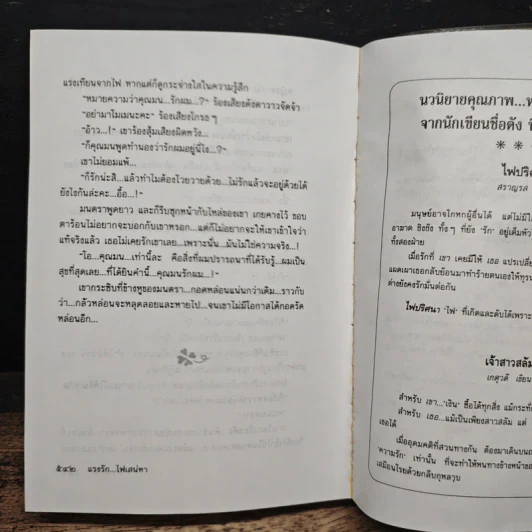 แรงเทียนจากไฟ หากแต่ก็ดูกระจ่างใสในความรู้สึก
"หมายความว่าคุณมน...รักผม...?" ร้องเสียงดังตาวาวจัดจ้า
"อย่ามาโมเมนะคะ" ร้องเสียงโกรธๆ
"อ้าว...!" เขาร้องสุ้มเสียงผิดหวัง...
"ก็คุณมนพูดทำนองว่ารักผมอยู่นี่ไง...?"
เขาไม่ยอมแพ้...
"ก็รักน่ะสิ...แล้วทำไมต้องโวยวายด้วย...ไม่รักแล้วจะอยู่ด้วยได้
ยังไงกันล่ะคะ...อื้อ...!"
มนตราพูดยาว และก็รีบซุกหน้ากับไหล่ของเขา เกยคางไว้ ขอบ
ตาร้อนไม่อยากจะบอกกับเขาหรอก...แต่ก็ไม่อยากจะให้เขาเข้าใจว่า
แท้จริงแล้ว เธอไม่เคยรักเขาเลย...เพราะนั่น...มันไม่ใช่ความจริง...!
"โอ...คุณมน...เท่านี้ละ คือสิ่งที่ผมปรารถนาที่ได้รับรู้...ผมเป็น
สุขที่สุดเลย...ที่ได้ยินคำนี้...คุณมนรักผม...!"
เขากระซิบที่ข้างหูของมนตรา...กอดหล่อนแน่นกว่าเดิม...ราวกับ
ว่า...กลัวหล่อนจะหลุดลอยและหายไป...จนเขาไม่มีโอกาสได้กอดรัด
หล่อนอีก...
๕๔๒ แรงรัก...ไฟเสน่หา
นวนิยายคุณภาพ...
จากนักเขียนชื่อดัง
* *
ไฟปริศ
สราญรส
มนุษย์อาจโกหกผู้อื่นได้ แต่ไม่มี
อาฆาต ชิงชัง ทั้งๆ ที่ยัง 'รัก' อยู่เต็มหัว
ทั้งสองฝ่าย
เมื่อรักที่ เขา เคยมีให้ เธอ แปรเปลี่ย
แผดเผาเธอกลับย้อนมาทำร้ายตนเองให้ทุรน
ต่างยังคงรักมั่นต่อกัน
ไฟปริศนา 'ไฟ' ที่เกิดและดับได้เพราะ
เจ้าสาวสลัม
เกตุวดี เขียน
สำหรับ เขา...'เงิน' ซื้อได้ทุกสิ่ง แม้กระทั่
สำหรับ เธอ...แม้เป็นเพียงสาวสลัม แต่
เธอได้
เมื่ออุดมคติที่สวนทางกัน ต้องมาเดินบน
'ความรัก' เท่านั้น ที่จะทำให้หนทางข้างหน้าของ
เสมือนโรยด้วยกลีบกุหลาบ